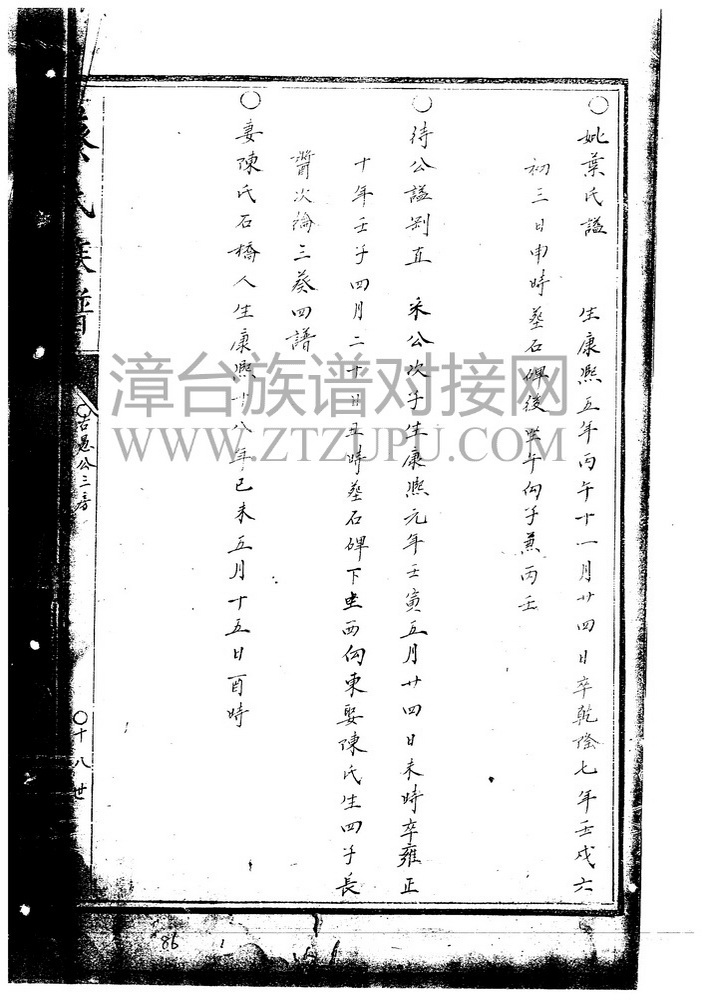 ○妣葉氏諡　生康熙五年丙午十一月廿四日卒乾隆七年壬戌六
初三日申時墓石碑後坐午向子兼丙壬
○待公諡剛直　釆公次子生康熙元年壬寅五月廿四日未時卒雍正
十年壬子四月二十日丑時墓石碑下坐西向東娶陳氏生四子長
次綸三葵四譜
○妻陳氏石橋人生康熙十八年己未五月十五日酉時
氏族譜
○古愚公三房
○十八世
漳台族谱对接网
WWW.ZTZUPU.COM
86